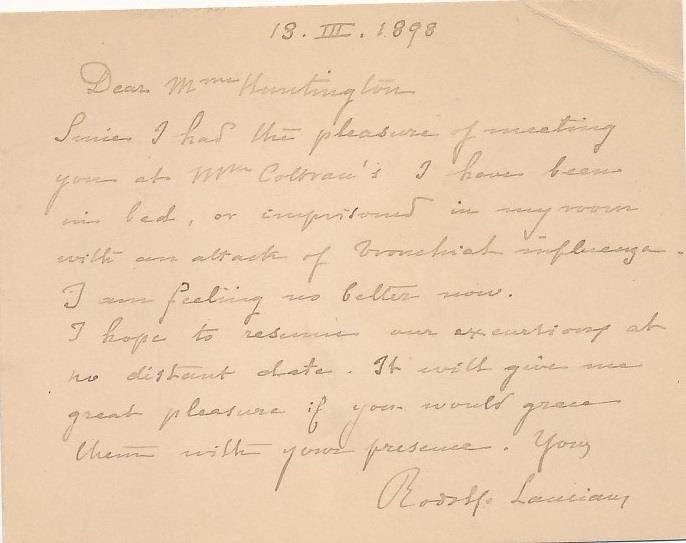 13. III. 1898
Dear Mme Huntington
Since I had the pleasure of meeting
you at Mme Coltrau's I have been
in bed, or imprisoned in my room
with an attack of bronchial influenza.
I am feeling no better now.
I hope to resume our excursions at
no distant date. It will give me
great pleasure if you would grace
them with your presence. Yours
Rodolfo Lanciani